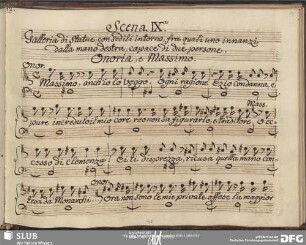 Scena IX.
Galleria di Statue, con Sedili intorno, fra quali uno innanzi
dalla mano destra, capace di due persone.
Onoria, e Massimo.
Onor.
Massimo, anch'io lo veggo. Ogni ragione Ezio condanna, e
Mass.
pure incredulo il mio cor, reo non sa figurarlo, e traditore. O ec-
cesso di clemenza. Ei ti disprezza, ricusa quella mano con-
Onor.
tesa da Monarchi. Ora non sono le mie private offese la maggior
SLUB
Wir führen Wissen.
DFG